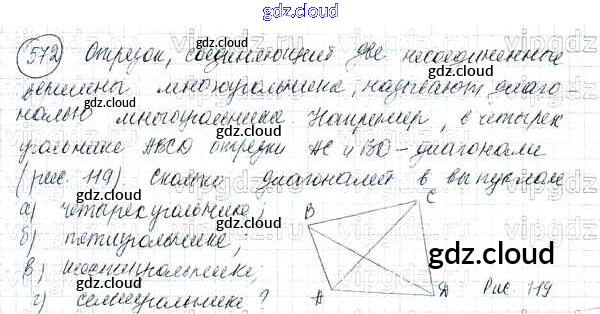 gdz.cloud
572 Отрезок, соединяющий две несоединённые
вершины многоугольника, называют диаго-
налью многоугольника. Например, в четырех
угольнике ABCD отрезки AC и BD – диагонали
(рис. 119). Сколько диагоналей в выпуклом
а) четырехугольнике;
б) пятиугольнике;
в) шестиугольнике;
г) семиугольнике?
B C
A D Рис. 119
gdz.cloud
gdz.cloud
gdz.cloud
gdz.cloud
gdz.cloud
gdz.cloud
gdz.cloud
gdz.cloud